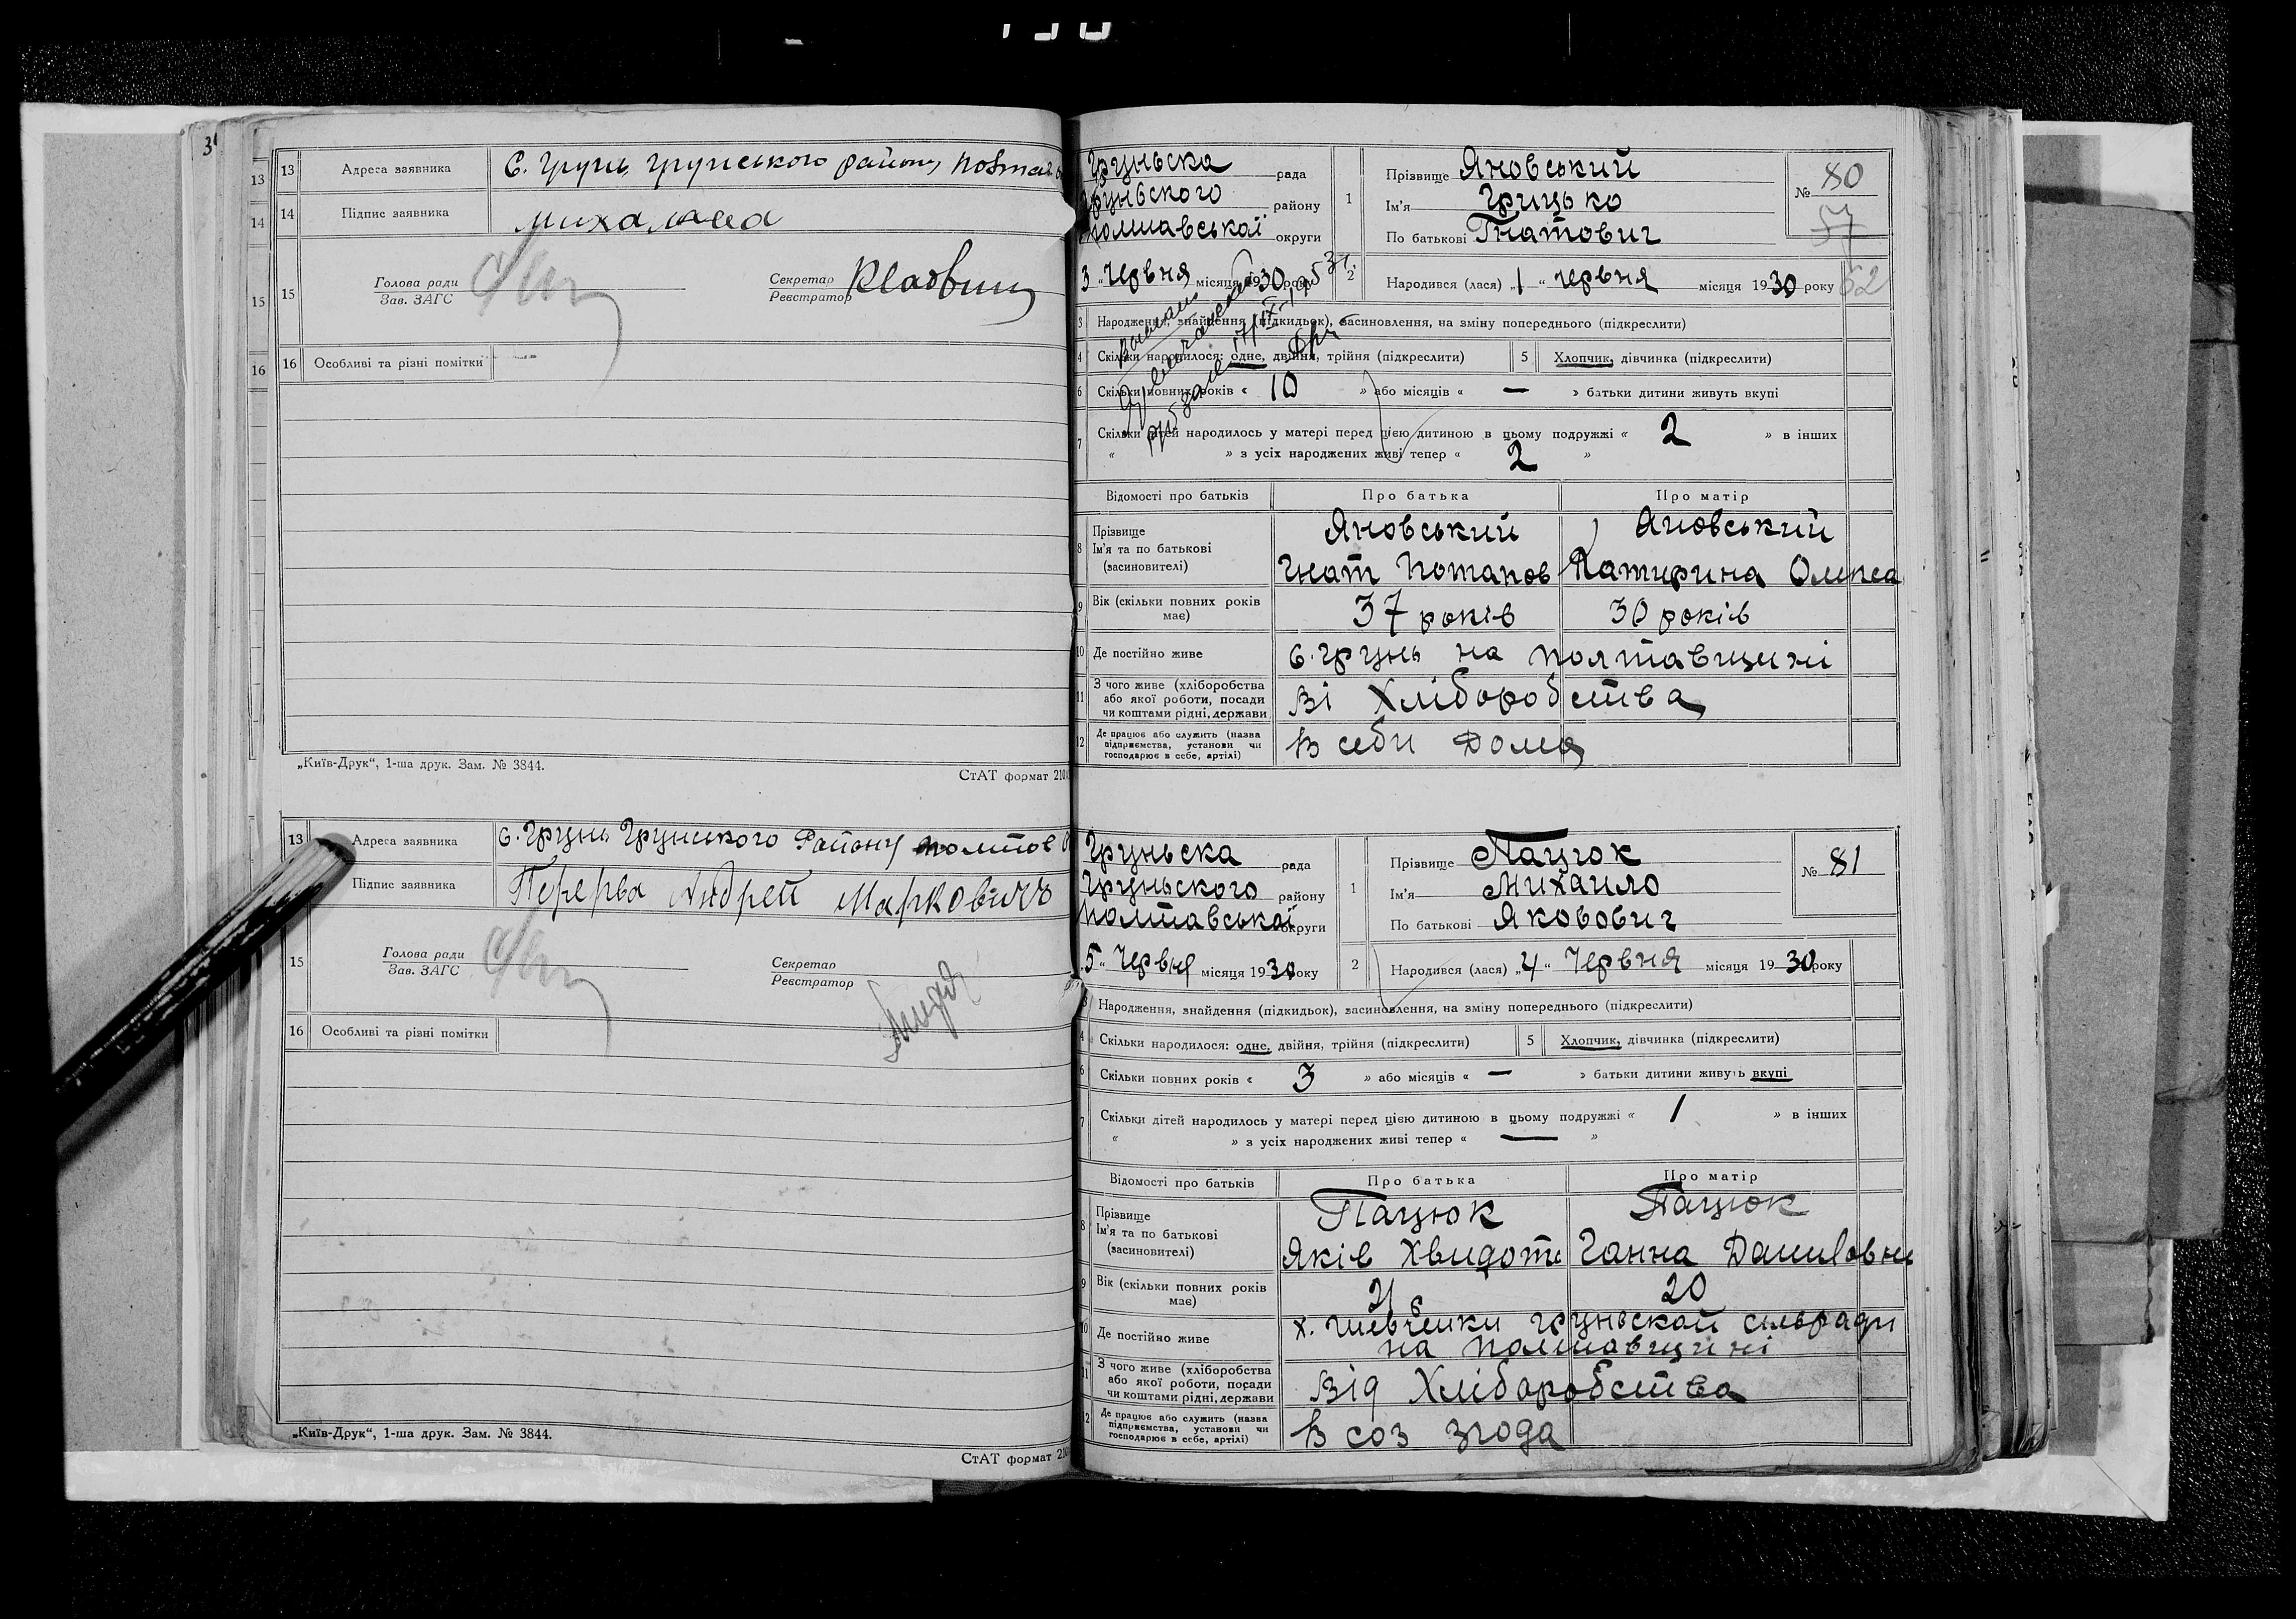 13 Адреса заявника С. Грунь, Грунського району
14 Підпис заявника
15 Голова ради
Зав. ЗАГС
Секретар
Реєстратор
16 Особливі та різні помітки
„Київ-Друк“, 1-ша друк. Зам. № 3844.
СтАТ формат 210
13 Адреса заявника с. Грунь Грунського Району
Підпис заявника Перерва Андрей Маркович
15 Голова ради
Зав. ЗАГС
Секретар
Реєстратор
16 Особливі та різні помітки
„Київ-Друк“, 1-ша друк. Зам. № 3844.
СтАТ формат
Груньска рада
Груньского району
Полтавської округи
3 „ Червня місяця 1930 року
1 Прізвище Яновський
Ім'я Грицько
По батькові Гнатович
№ 80
57
62
2 Народився (лася) „1“ червня місяця 1930 року
3 Народження, знайдення (підкидьок), засиновлення, на зміну попереднього (підкреслити)
4 Скільки народилося: одне, двійня, трійня (підкреслити) 5 Хлопчик, дівчинка (підкреслити)
6 Скільки повних років « 10 » або місяців « — » батьки дитини живуть вкупі
7 Скільки дітей народилось у матері перед цією дитиною в цьому подружжі « 2 » в інших
« » з усіх народжених живі тепер « 2 »
Відомості про батьків Про батька Про матір
8 Прізвище Яновський Яновський
Ім'я та по батькові
(засиновителі) Гнат Потапов Катирина Олекса
9 Вік (скільки повних років має) 37 років 30 років
10 Де постійно живе с. Грунь на Полтавщині
11 З чого живе (хліборобства
або якої роботи, посади
чи коштами рідні, держави Ві Хліборобства
12 Де працює або служить (назва
підприємства, установи чи
господарює в себе, артілі) В себи Дома
Груньска рада
Груньского району
Полтавської округи
5 „ Червня місяця 1930 року
1 Прізвище Пацюк
Ім'я Михайло
По батькові Яковович
№ 81
2 Народився (лася) „4“ Червня місяця 1930 року
3 Народження, знайдення (підкидьок), засиновлення, на зміну попереднього (підкреслити)
4 Скільки народилося: одне, двійня, трійня (підкреслити) 5 Хлопчик, дівчинка (підкреслити)
6 Скільки повних років « 3 » або місяців « — » батьки дитини живуть вкупі
7 Скільки дітей народилось у матері перед цією дитиною в цьому подружжі « 1 » в інших
« » з усіх народжених живі тепер « — »
Відомості про батьків Про батька Про матір
8 Прізвище Пацюк Пацюк
Ім'я та по батькові
(засиновителі) Яків Хвидоть Ганна Даниловни
9 Вік (скільки повних років має) 21 20
10 Де постійно живе х. Шевченки Груньской сильради
на Полтавщині
11 З чого живе (хліборобства
або якої роботи, посади
чи коштами рідні, держави Від Хліборобства
12 Де працює або служить (назва
підприємства, установи чи
господарює в себе, артілі) В соз згода